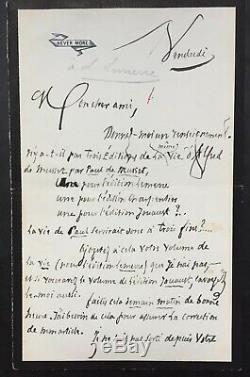 NEVER MORE
Vendredi
à A. Lemerre
Mon cher ami,
Donnez-moi un renseignement
N'y a t-il pas trois Editions de la Vie d'Alfred
de Musset, par Paul de Musset,
Une pour l'édition Lemerre
une pour l'édition Charpentier
une pour l'édition Jouaust ?..
La vie de Paul servirait donc à trois fins ?...
Ajoutez à cela votre volume de
la Vie (pour l'édition Lemerre) que je n'ai pas
et si vous avez le volume de l'édition Jouaust, envoyez
le moi aussi.
Faites cela demain matin de bonne
heure. J'ai besoin de cela pour assurer la correction
de mon article.
Je ne suis pas sorti depuis